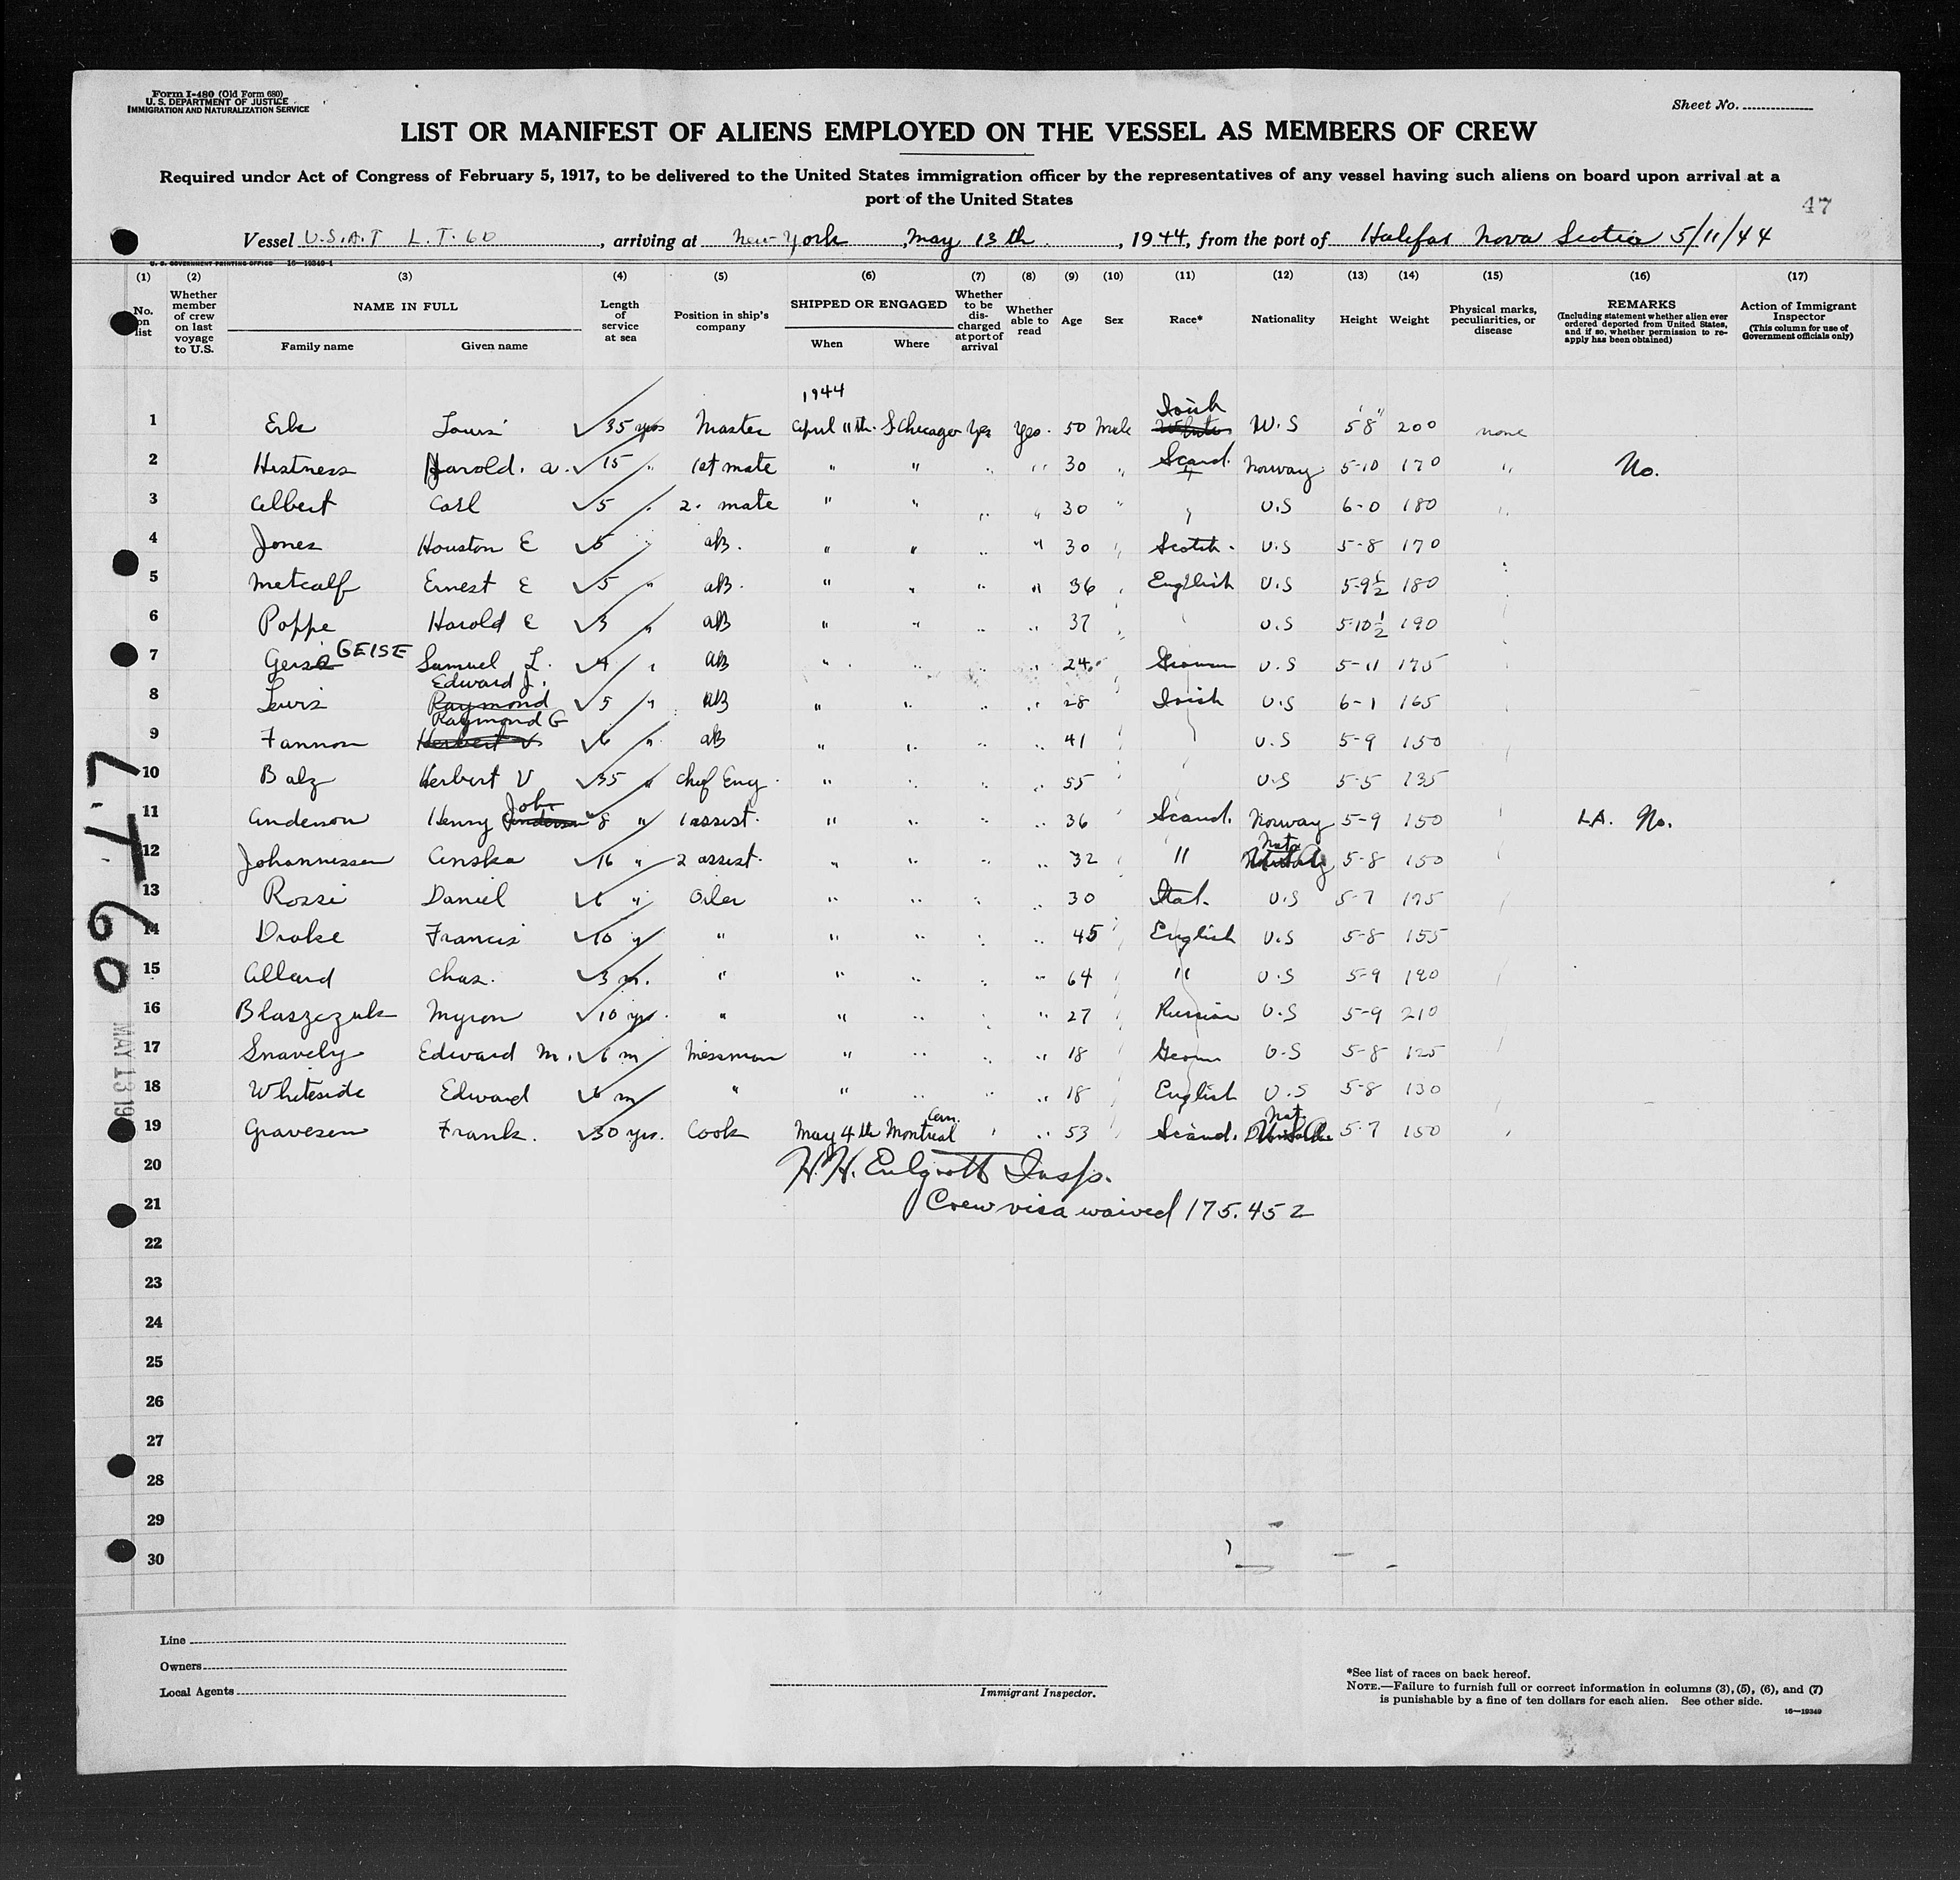 Form I-480 (Old Form 680)
U. S. DEPARTMENT OF JUSTICE
IMMIGRATION AND NATURALIZATION SERVICE
Sheet No.
LIST OR MANIFEST OF ALIENS EMPLOYED ON THE VESSEL AS MEMBERS OF CREW
Required under Act of Congress of February 5, 1917, to be delivered to the United States immigration officer by the representatives of any vessel having such aliens on board upon arrival at a
port of the United States
47
Vessel U.S.A.T L.T. 60, arriving at New York May 13th, 1944, from the port of Halifax Nova Scotia 5/11/44
U. S. GOVERNMENT PRINTING OFFICE 16-19349-1
(1) (2) (3) (4) (5) (6) (7) (8) (9) (10) (11) (12) (13) (14) (15) (16) (17)
No. on list
Whether member of crew on last voyage to U.S.
NAME IN FULL
Family name
Given name
Length of service at sea
Position in ship's company
SHIPPED OR ENGAGED
When
Where
Whether to be discharged at port of arrival
Whether able to read
Age
Sex
Race*
Nationality
Height
Weight
Physical marks, peculiarities, or disease
REMARKS
(Including statement whether alien ever ordered deported from United States, and if so, whether permission to reapply has been obtained)
Action of Immigrant Inspector
(This column for use of Government officials only)
1944
Irish
1 Erb Louis 35 yrs Master April 11th S Chicago Yes Yes 50 Male White U.S 5'8" 200 none
2 Harold. A. 15 " 1st mate " " " " 30 " Scand. Norway 5-10 170 " No.
3 Albert Carl 5 " 2. mate " " " " 30 " " U.S 6-0 180 "
4 Jones Houston E 5 " AB. " " " " 30 " Scotch U.S 5-8 170
5 Metcalf Ernest E 5 " AB. " " " " 36 " English U.S 5-9½ 180
6 Poppe Harold E 3 " AB " " " " 37 " U.S 5-10½ 190
7 Geise GEISE Samuel L. 4 " AB " " " " 24 German U.S 5-11 175
Edward J.
8 Lewis Raymond 5 " AB " " " " 28 Irish U.S 6-1 165
Raymond G
9 Fannon Herbert V 6 " AB " " " " 41 U.S 5-9 150
10 Balz Herbert V 35 " Chef Eng. " " " " 55 U.S 5-5 135
John
11 Anderson Henry Anderson 8 " 1 assist. " " " " 36 Scand. Norway 5-9 150 LA. No.
Nat.
12 Johannessen 16 " 2 assist. " " " " 32 " 5-8 150
13 Rossi Daniel 6 " Oiler " " " " 30 Ital. U.S 5-7 175
14 Drake Francis 10 " " " " " " 45 English U.S 5-8 155
15 Allard Chas. 3 m. " " " " " 64 " U.S 5-9 190
16 Blaszczuk Myron 10 yr. " " " " " 27 Russian U.S 5-9 210
17 Snavely Edward M. 6 m Messman " " " " 18 Germ U.S 5-8 125
18 Whiteside Edward 6 m " " " " " 18 English U.S 5-8 130
Can. Nat.
19 Gravesen Frank. 30 yrs. Cook May 4th Montreal " " 53 Scand. 5-7 150
20 H.H. Insp.
21 Crew visa waived 175.452
22
23
24
25
26
27
28
29
30
L.T. 60
MAY 13 19
Line
Owners
Local Agents
Immigrant Inspector.
*See list of races on back hereof.
NOTE.—Failure to furnish full or correct information in columns (3), (5), (6), and (7)
is punishable by a fine of ten dollars for each alien. See other side.
16-19349